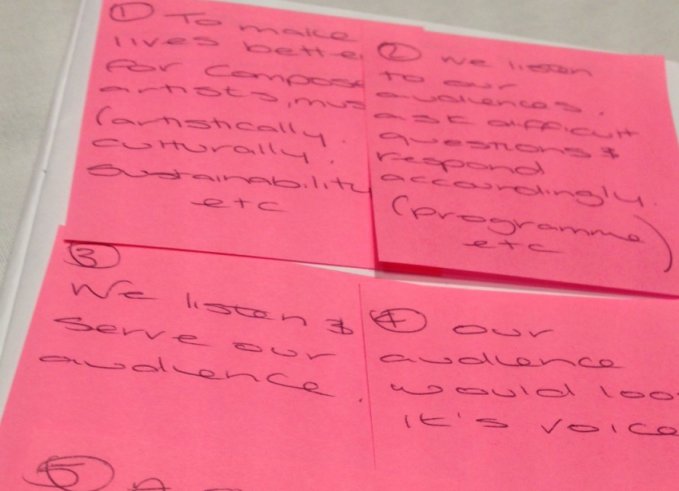 ① To make
lives bette
for compos
artists, mus
(artistically
culturally
sustainability
etc
② we listen
to our
audiences,
ask difficult
questions &
respond
accordingly.
(programme)
etc
③
We listen &
serve our
audience.
④ our
audience
would loo
it's voice
⑤